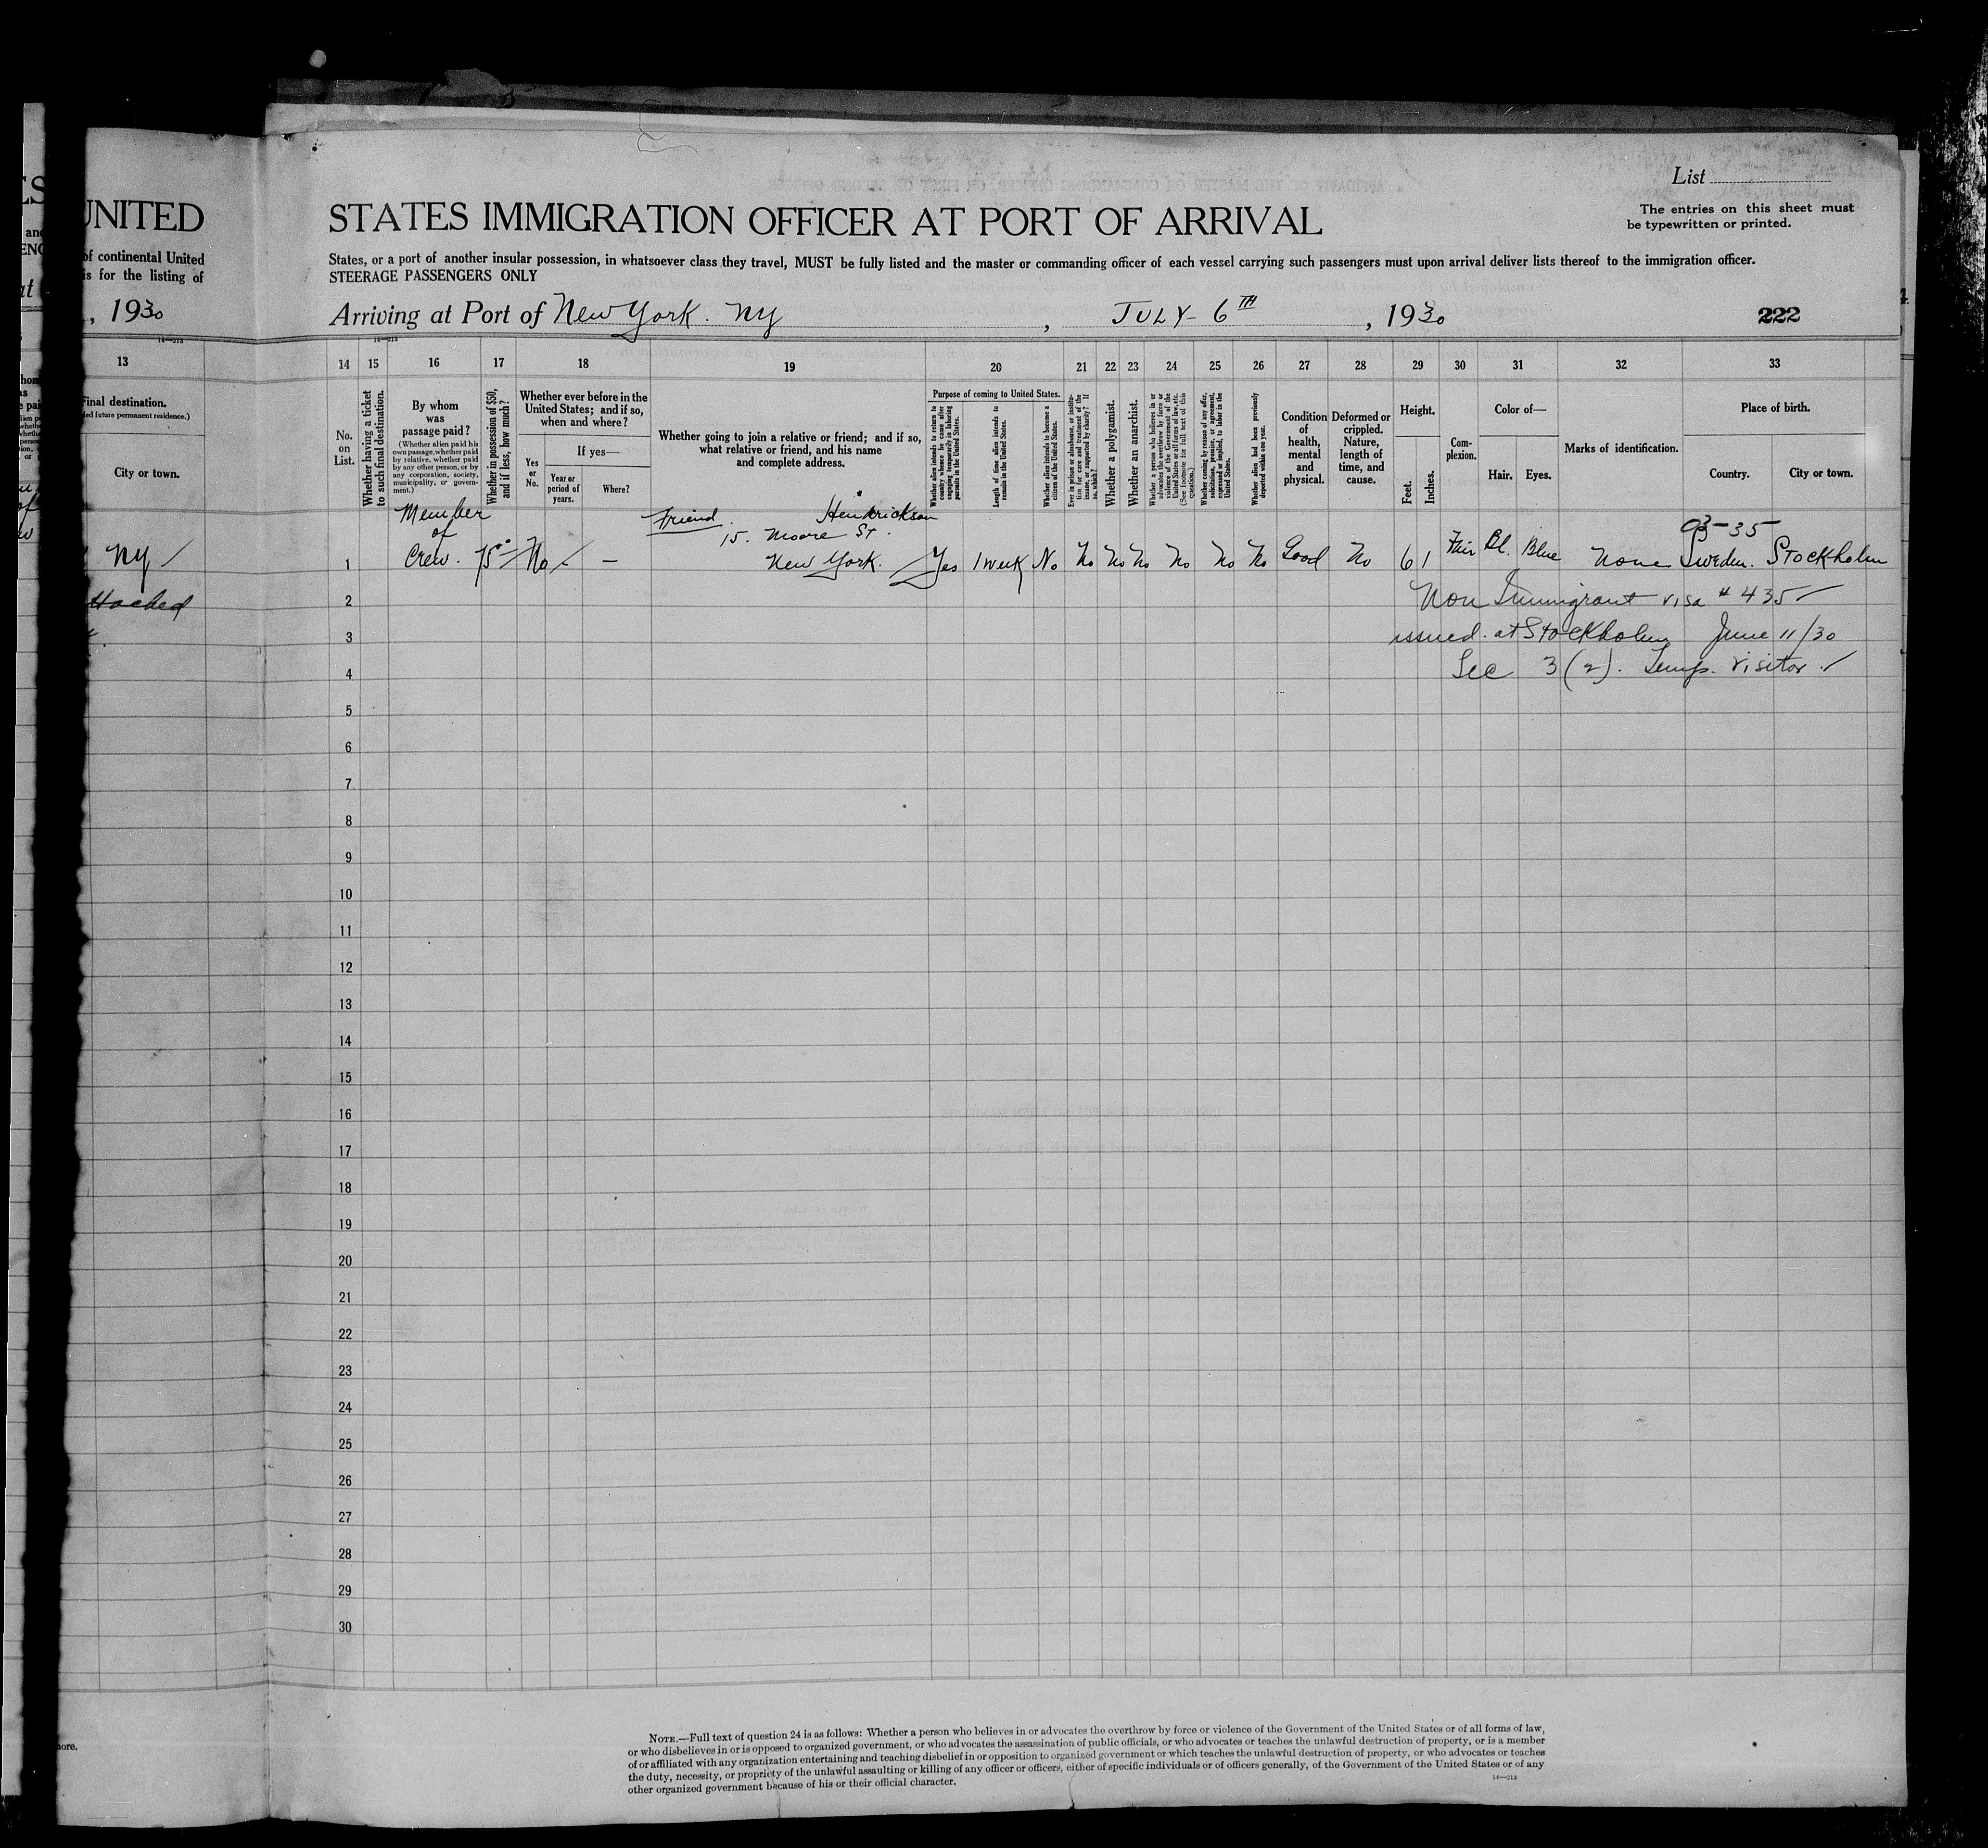 ES
UNITED
of continental United
is for the listing of
, 1930
13
Final destination.
City or town.
NY /
List
The entries on this sheet must
be typewritten or printed.
STATES IMMIGRATION OFFICER AT PORT OF ARRIVAL
States, or a port of another insular possession, in whatsoever class they travel, MUST be fully listed and the master or commanding officer of each vessel carrying such passengers must upon arrival deliver lists thereof to the immigration officer.
STEERAGE PASSENGERS ONLY
Arriving at Port of New York. NY , JULY- 6TH , 1930
222
14 15 16 17 18 19 20 21 22 23 24 25 26 27 28 29 30 31 32 33
No. on List.
Whether having a ticket to such final destination.
By whom was passage paid?
(Whether alien paid his own passage, whether paid by relative, whether paid by any other person, or by any corporation, society, municipality, or government.)
Whether in possession of $50, and if less, how much?
Whether ever before in the United States; and if so, when and where?
Yes or No.
If yes—
Year or period of years.
Where?
Whether going to join a relative or friend; and if so, what relative or friend, and his name and complete address.
Purpose of coming to United States.
Whether alien intends to return to country whence he came after engaging temporarily in laboring pursuits in the United States.
Length of time alien intends to remain in the United States.
Whether alien intends to become a citizen of the United States.
Ever in prison or almshouse, or institution for care and treatment of the insane, or supported by charity? If so, which?
Whether a polygamist.
Whether an anarchist.
Whether a person who believes in or advocates the overthrow by force or violence of the Government of the United States or all forms of law, etc. (See footnote for full text of this question.)
Whether coming by reason of any offer, solicitation, promise, or agreement, expressed or implied, to labor in the United States.
Whether alien had been previously deported within one year.
Condition of health, mental and physical.
Deformed or crippled. Nature, length of time, and cause.
Height.
Feet.
Inches.
Complexion.
Color of—
Hair.
Eyes.
Marks of identification.
Place of birth.
Country.
City or town.
Member of Crew. 75°° No — Friend. Hendrickson
15. Moore St.
New York.
1 Yes 1 week No No No No No No No Good No 6 1 Fair Bl. Blue None Sweden. Stockholm
03-35
2 Non Immigrant visa # 435
3 issued at Stockholm June 11/30
4 Sec 3 (2). Temp. visitor.
5
6
7
8
9
10
11
12
13
14
15
16
17
18
19
20
21
22
23
24
25
26
27
28
29
30
NOTE.—Full text of question 24 is as follows: Whether a person who believes in or advocates the overthrow by force or violence of the Government of the United States or of all forms of law,
or who disbelieves in or is opposed to organized government, or who advocates the assassination of public officials, or who advocates or teaches the unlawful destruction of property, or is a member
of or affiliated with any organization entertaining and teaching disbelief in or opposition to organized government or which teaches the unlawful destruction of property, or who advocates or teaches
the duty, necessity, or propriety of the unlawful assaulting or killing of any officer or officers, either of specific individuals or of officers generally, of the Government of the United States or of any
other organized government because of his or their official character.
14—213